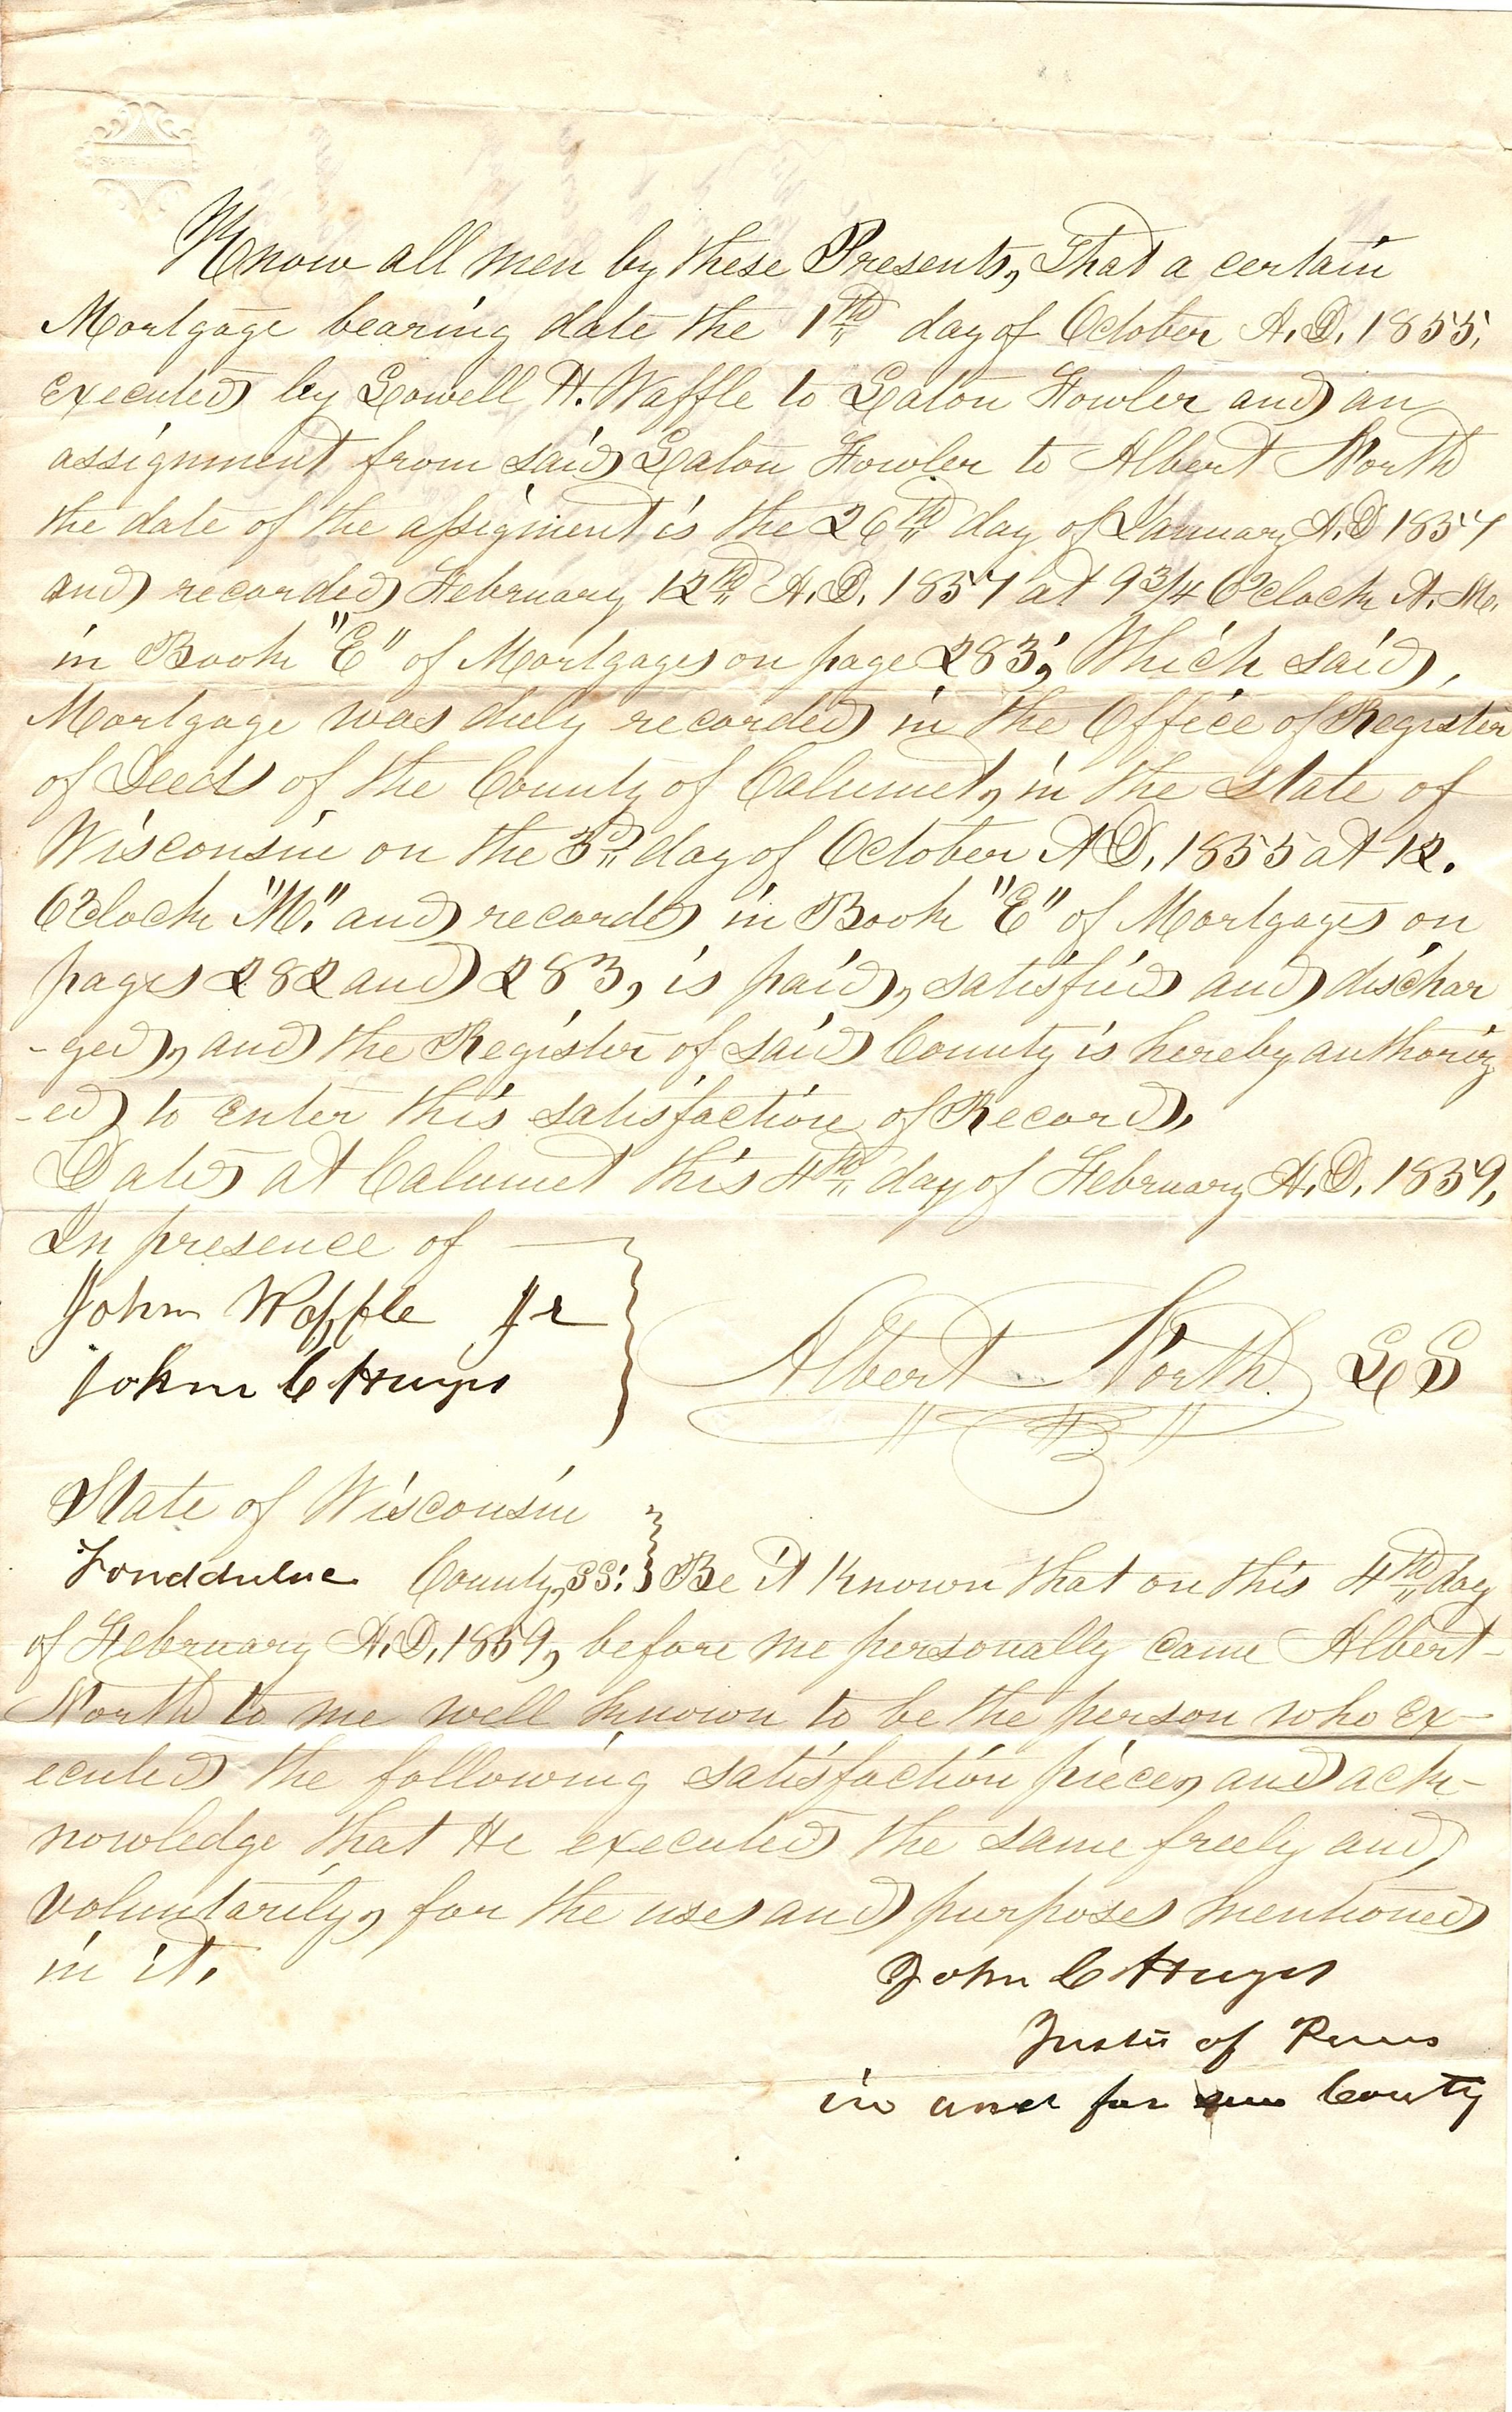 Know all men by these Presents, That a certain
Mortgage bearing date the 1th day of October A.D. 1855,
executed by Lowell H. Waffle to Laton Fowler and an
assignment from said Laton Fowler to Albert North
the date of the assigment is the 26th day of January A.D 1857
and recorded February 12th A.D. 1857 at 9 3/4 O'clock A.M.
in Book "E" of Mortgages on page 283, Which said,
Mortgage was duly recorded in the Office of Register
of Deeds of the County of Calumet, in the State of
Wisconsin on the 3d day of October AD, 1855 at 12.
O'clock "M." and recorded in Book "E" of Mortgages on
pages 282 and 283, is paid, satisfied and dischar
-ged, and the Register of said County is hereby authoriz
-ed to enter this satisfaction of Record.
Dated at Calumet this 4th day of February A.D. 1859,
In presence of
John Waffle Jr
John C Huyes
Albert North LS
State of Wisconsin
Fonddulac County, SS: Be it Known that on this 4th day
of February A.D. 1859, before me personally came Albert-
North to me well known to be the person who ex-
ecuted the following satisfaction piece, and ack-
nowledge that He executed the same freely and
voluntarily, for the uses and purposes mentioned
in it.
John C Huyes
Justice of Peace
in and for County